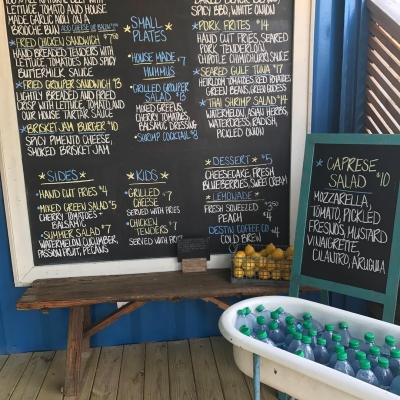 TOMATO AND HOUSE
MADE GARLIC AIOLI ON A
BRIOCHE BUN
FRIED CHICKEN SANDWICH
HAND BREADED TENDERS WITH
LETTUCE TOMATOES AND SPICY
BUTTERMILK SAUCE
FRIED GROUPER SANDWICH $13
LIGHTLY BREADED AND FRIED
CRISP WITH LETTUCE, TOMATO, AND
OUR HOUSE TARTAR SAUCE
BRISKET JAM BURGER $10
SPICY PIMENTO CHEESE,
SMOKED BRISKET JAM
SIDES
HAND CUT FRIES $4
MIXED GREEN SALAD $5
CHERRY TOMATOES +
BALSAMIC
SUMMER SALAD $7
WATERMELON, CUCUMBER,
PASSION FRUIT, PECANS
SMALL
PLATES
HOUSE MADE $7
HUMMUS
GRILLED GROUPER
SALAD $13
MIXED GREENS,
CHERRY TOMATOES,
BALSAMIC DRESSING
SHRIMP COCKTAIL $8
KIDS
GRILLED $7
CHEESE
SERVED WITH FRIES
CHICKEN $7
TENDERS
SERVED WITH FRIES
SPICY BBQ, WHITE ONION
PORK FRITES $14
HAND CUT FRIES, SEARED
PORK TENDERLOIN,
CHIPOTLE CHIMICHURRI SAUCE
SEARED GULF TUNA $17
HEIRLOOM TOMATOES, RED POTATOES
GREEN BEANS, GREEN GODDESS
THAI SHRIMP SALAD $14
WATERMELON, ASIAN HERBS,
WATERCRESS, RADISH,
PICKLED ONION
DESSERT $5
CHEESECAKE, FRESH
BLUEBERRIES, SWEET CREAM
LEMONADE
FRESH SQUEEZED $3.50
PEACH $4
DESTIN COFFEE CO $4
COLD BREW
CAPRESE
SALAD $10
MOZZARELLA,
TOMATO, PICKLED
FRESNOS, MUSTARD
VINAIGRETTE,
CILANTRO, ARUGULA